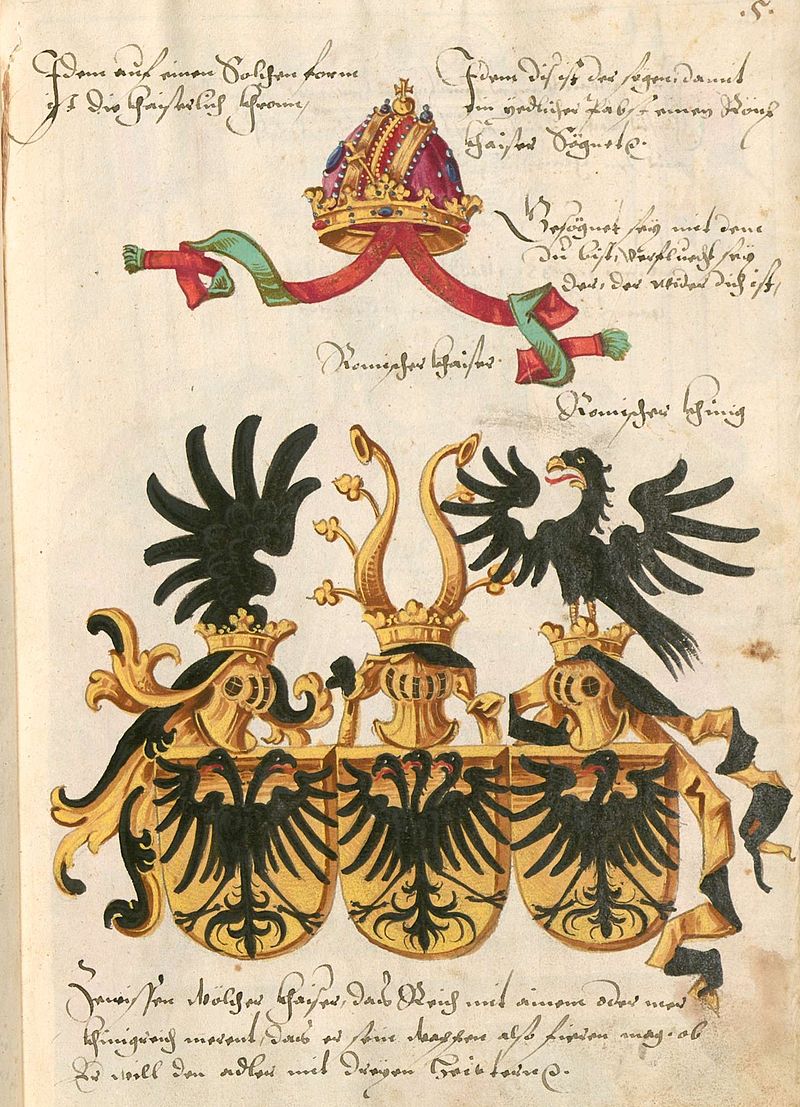 .5.
Idem auf einen Solchen form
ist die khaiserlich khron,
Idem dis ist der segen, damit
ein yedlicher Pabst einen Röm
khaiser Segnet.
Gesegnet sey mit dem
Du bist, verfluecht sey
der, der wider dich ist,
Romischer khaiser
Romischer khinig
Zewissen wölcher khaiser, das Reich mit ainem oder mer
khinigreich meret, das er sein wappen also fieren mag, ob
Er will den adler mit dreyen